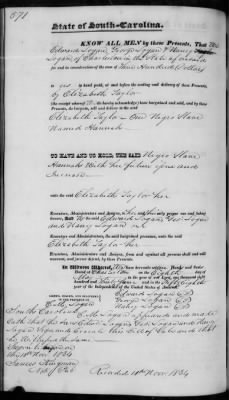 571
State of South-Carolina.
KNOW ALL MEN by these Presents, That We
Edward Logan George Logan & Nancy
Logan of Charleston in the State aforesaid
for and in consideration of the sum of Three Hundred Dollars
to us in hand paid, at and before the sealing and delivery of these Presents,
by Elizabeth Taylor
(the receipt whereof We do hereby acknowledge) have bargained and sold, and by these
Presents, do bargain, sell and deliver to the said
Elizabeth Taylor One Negro Slave
Named Hannah
TO HAVE AND TO HOLD, THE SAID Negro Slave
Hannah With her future Issue and
Increase
unto the said Elizabeth Taylor her
Executors, Administrators and Assigns, to her and their only proper use and behoof,
forever. And We the said Edward Logan Geo Logan
and Nancy Logan
Executors, Administrators, the said bargained premises, unto the said
Elizabeth Taylor her
Executors, Administrators and Assigns, from and against all persons shall and will
warrant, and forever defend, by these Presents.
In Witness Whereof, We have hereunto set Hands and Seals
Dated at Charleston on the
day of May in the year of our Lord, one thousand eight
hundred and thirty four and in the fifty eighth
year of the Independence of the United States of America.
SIGNED, SEALED, AND DELIVERED
IN THE PRESENCE OF
Edward Logan
George Logan
Nancy Logan
South Carolina
and made
Oath that he saw Edward Logan Geo Logan and Nancy
Logan Sign and execute this Bill of Sale and that
he Witnessed the Same
Sworn to before
the 18th Nov 1834
Recorded 18th Nov. 1834